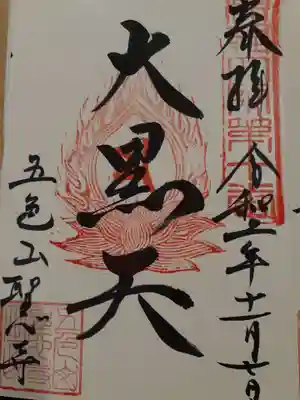 奉拝 令和二年十一月七日
大黒天
五色山聖心寺